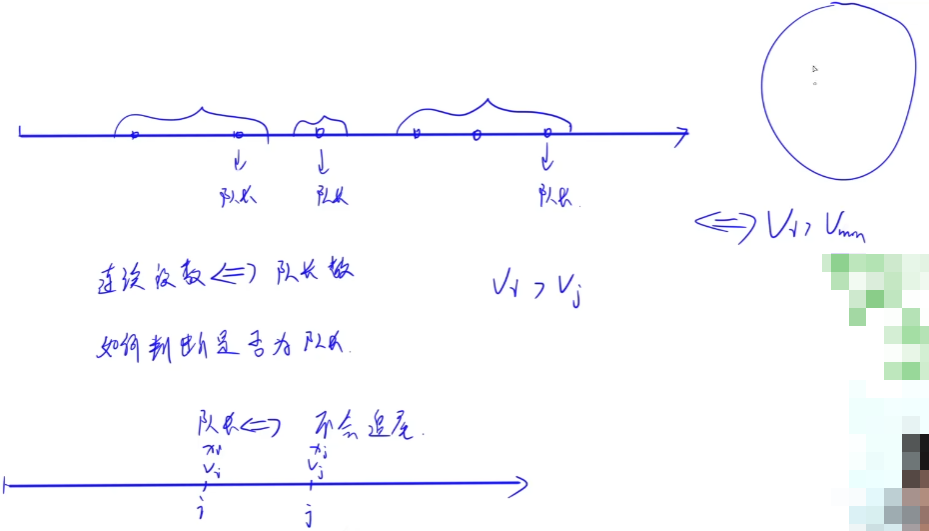 队长 队长 队长.
⟺ Vi > Vmin
连续段数 ⟺ 队长数
Vi > Vj
如何判断是否为队长.
队长 ⟺ 不会追尾.
xi xj
Vi Vj
i j